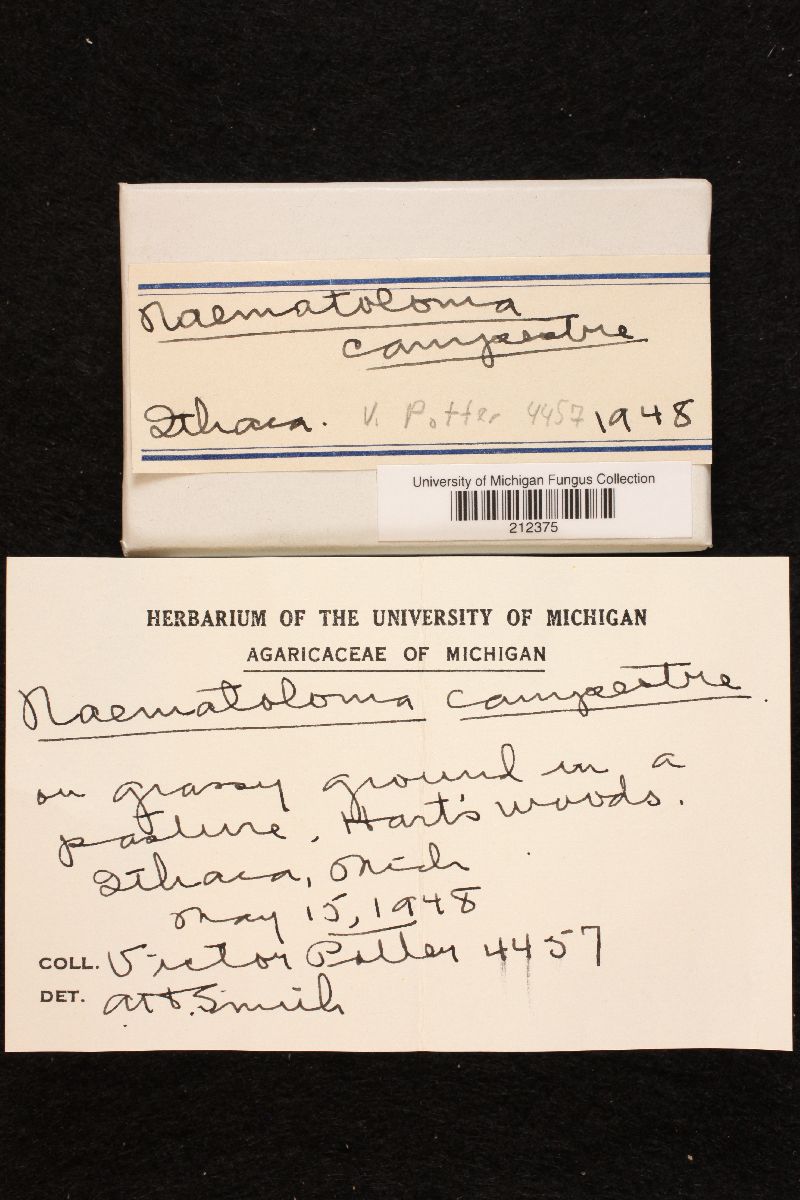 Naematoloma
campestre
Ithaca. V. Potter 4457 1948
University of Michigan Fungus Collection
212375
HERBARIUM OF THE UNIVERSITY OF MICHIGAN
AGARICACEAE OF MICHIGAN
Naematoloma campestre.
on grassy ground in a
pasture, Hart's woods.
Ithaca, Mich
May 15, 1948
COLL. Victor Potter 4457
DET. A.H. Smith